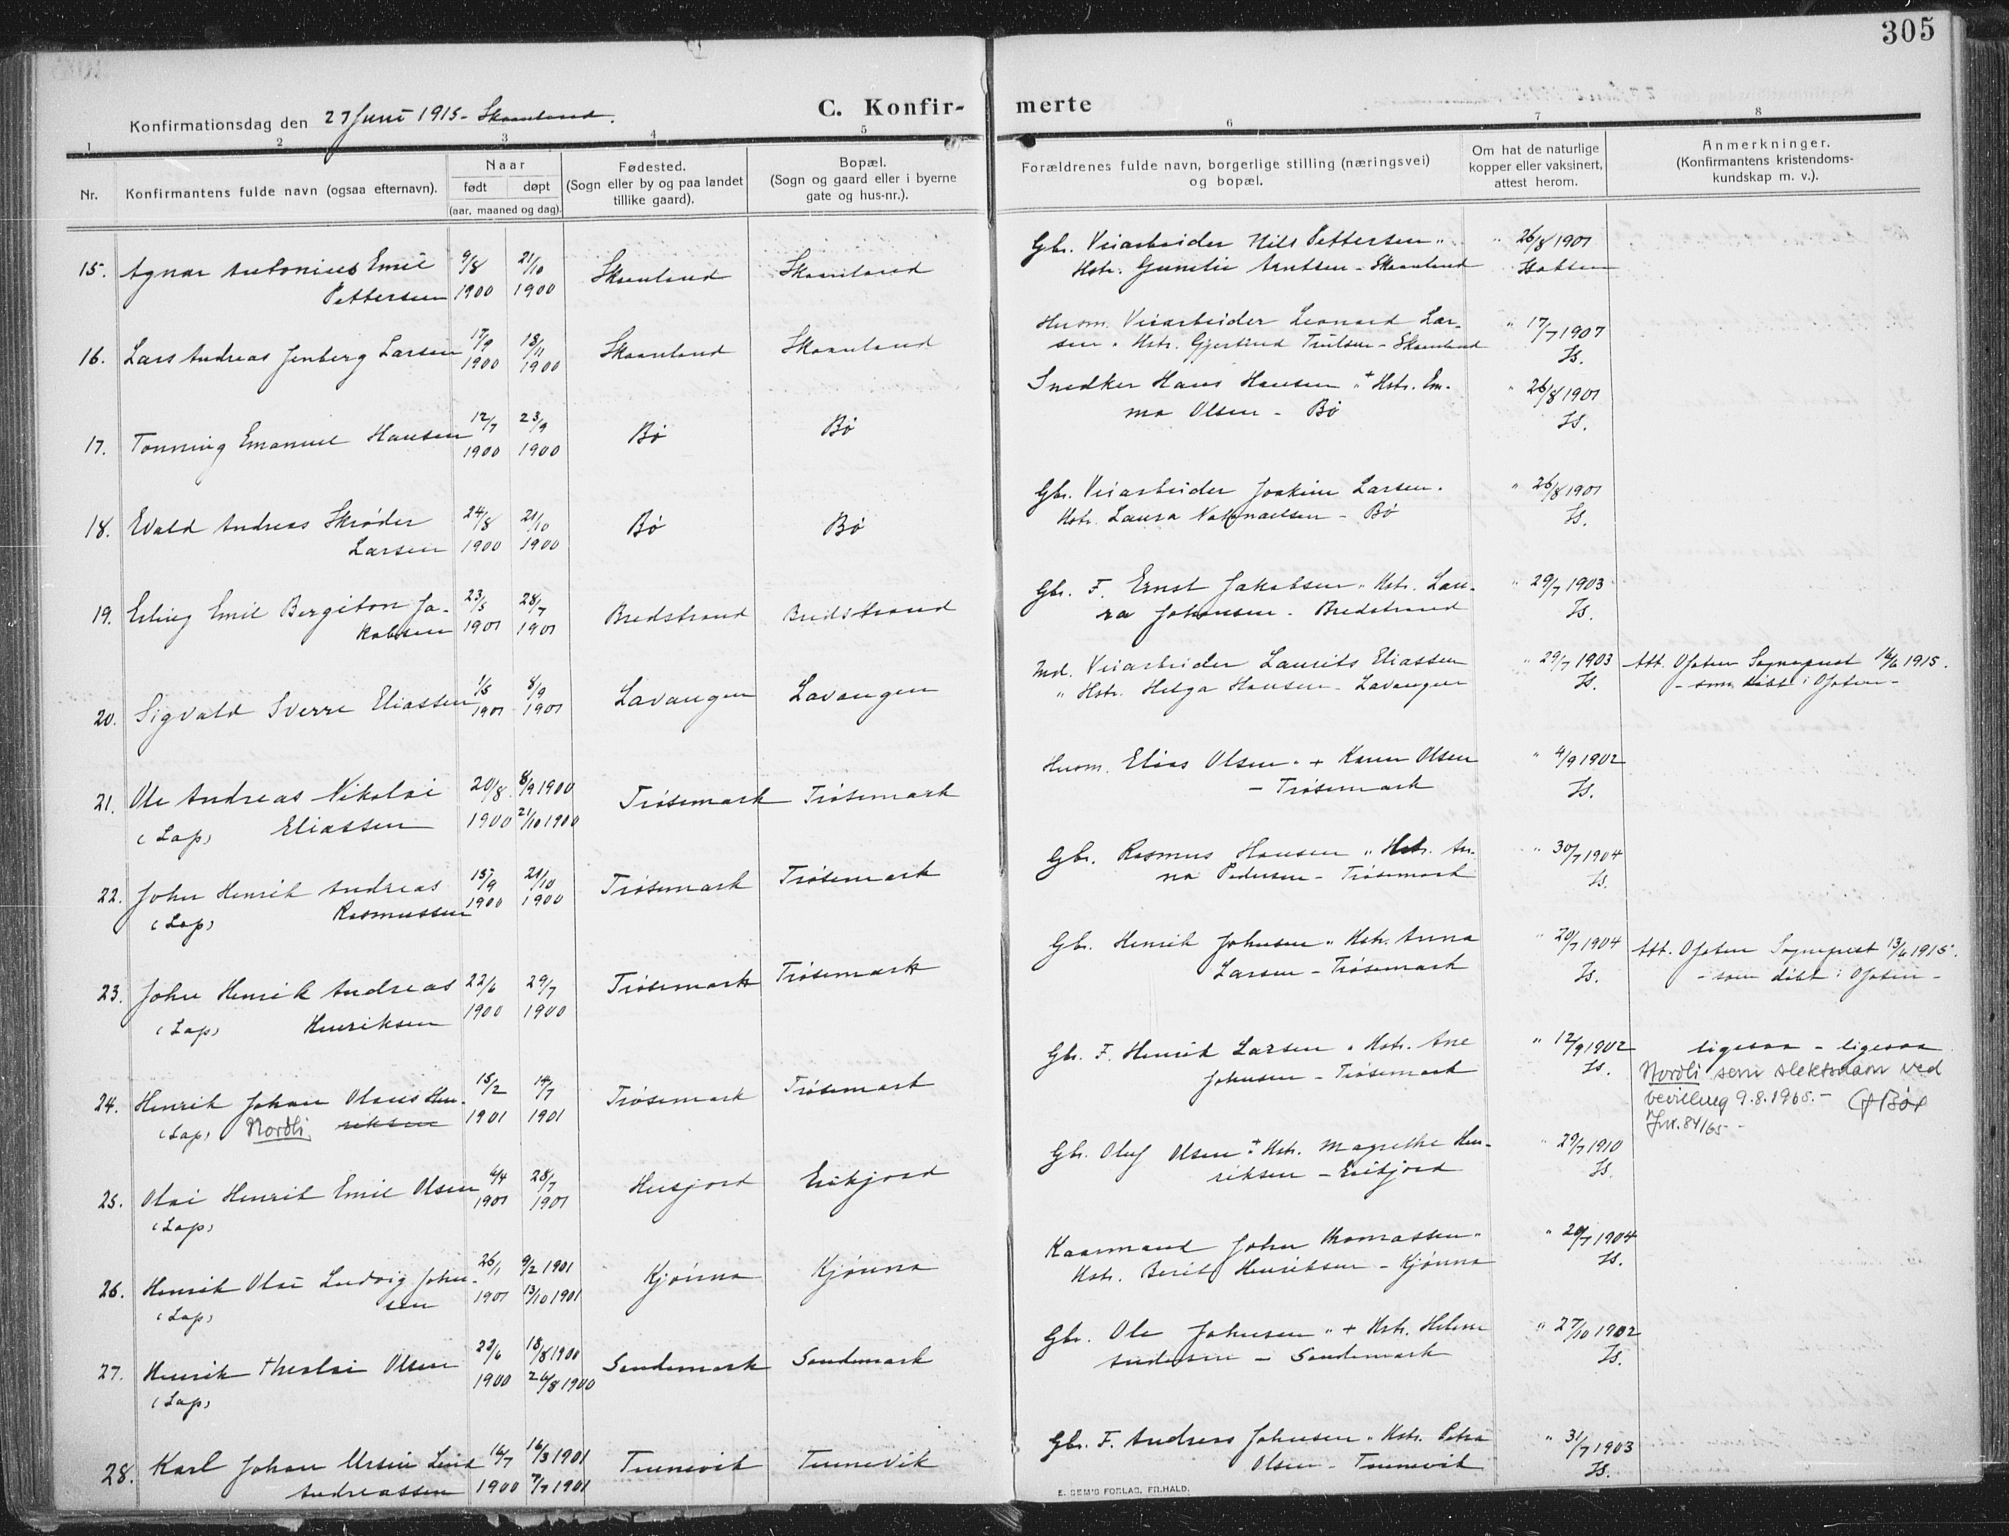 305
Konfirmationsdag den 27 Juni 1915 - Skaanland.
C. Konfir-
merte
1 2 3 4 5 6 7 8
Nr.
Konfirmantens fulde navn (ogsaa efternavn).
Naar
født døpt
(aar, maaned og dag).
Fødested.
(Sogn eller by og paa landet
tillike gaard).
Bopæl.
(Sogn og gaard eller i byerne
gate og hus-nr.).
Forældrenes fulde navn, borgerlige stilling (næringsvei)
og bopæl.
Om hat de naturlige
kopper eller vaksinert,
attest herom.
Anmerkninger.
(Konfirmantens kristendoms-
kundskap m. v.).
15. Agnar Antonius Emil 9/8 21/10 Skaanland Skaanland Gbr. Veiarbeider Nils Pettersen " " 26/8 1901
Pettersen 1900 1900 Hstr. Arntsen - Skaanland
16. Lars Andreas Jenberg Larsen 17/9 18/11 Skaanland Skaanland Husm. Veiarbeider Leonard Lar- " 17/7 1907
1900 1900 sen " Hstr. Gjertine - Skaanland Is.
17. Tonning Emanuel Hansen 12/7 23/9 Bø Bø Snedker Hans Hansen "+ Hstr. Em- " 26/8 1901
1900 1900 ma Olsen - Bø Is.
18. Evald Andreas Skrøder 24/8 21/10 Bø Bø Gbr. Veiarbeider Joakim Larsen. " 26/8 1901
Larsen 1900 1900 Hstr. Laura Natanaelsen - Bø Is.
19. Erling Emil Bergiton Ja- 23/5 28/7 Bredstrand Bredstrand Gbr. F. Ernst Jakobsen " Hstr. Lau- " 29/7 1903
kobsen 1901 1901 ra Johansen - Bredstrand Is.
20. Sigvald Sverre Eliassen 1/5 8/9 Lavangen Lavangen Ind. Veiarbeider Laurits Eliassen " 29/7 1903 Att. Ofoten Sogneprest 16/6 1915.
1901 1901 " Hstr. Helga Hansen - Lavangen Is. - som døbt i Ofoten -
21. Ole Andreas Nikolai 20/8 8/9 1900 Trøsemark Trøsemark Husm. Elias Olsen " + Karen Olsen " 4/9 1902
(Lap) Eliassen 1900 21/10 1900 - Trøsemark Is.
22. John Henrik Andreas 15/9 21/10 Trøsemark Trøsemark Gbr. Rasmus Hansen " Hstr. An- " 30/7 1904
(Lap) Rasmussen 1900 1900 na Pedersen - Trøsemark Is.
23. John Henrik Andreas 22/6 29/7 Trøsemark Trøsemark Gbr. Henrik Johnsen " Hstr. Anna " 20/7 1904 Att. Ofoten Sogneprest 13/6 1915.
(Lap) Henriksen 1900 1900 Larsen - Trøsemark Is. - som døbt i Ofoten -
24. Henrik Johan Olaus Hen- 15/2 14/7 Trøsemark Trøsemark Gbr. F. Henrik Larsen " Hstr. Ane " 12/9 1902 ligesaa - ligesaa
(Lap) Nordli riksen 1901 1901 Johnsen - Trøsemark Is. Nordli som slektsnavn ved
bevilling 9.8.1965. - G Bøe
Jnr. 84/65 -
25. Olai Henrik Emil Olsen 4/4 28/7 Husjord Erikjord Gbr. Oluf Olsen "+ Hstr. Magrethe Hen- " 29/7 1910
(Lap) 1901 1901 riksen - Erikjord Is.
26. Henrik Olai Ludvig John- 26/1 9/2 1901 Kjønna Kjønna Kaarmand John Thomassen " " 20/7 1904
(Lap) sen 1901 13/10 1901 Hstr. Berit Henriksen - Kjønna Is.
27. Henrik Olsen 22/6 18/8 1900 Sandemark Sandemark Gbr. Ole Johnsen " + Hstr. Helene " 27/10 1902
(Lap) 1900 26/8 1900 Andersen - Sandemark Is.
28. Karl Johan Ursin Lind 16/7 16/3 1901 Tunnevik Tunnevik Gbr. F. Andreas Johnsen " Hstr. Petra " 31/7 1903
Andreassen 1900 7/7 1901 Olsen - Tunnevik Is.
E. SEM'S FORLAG, FR.HALD.